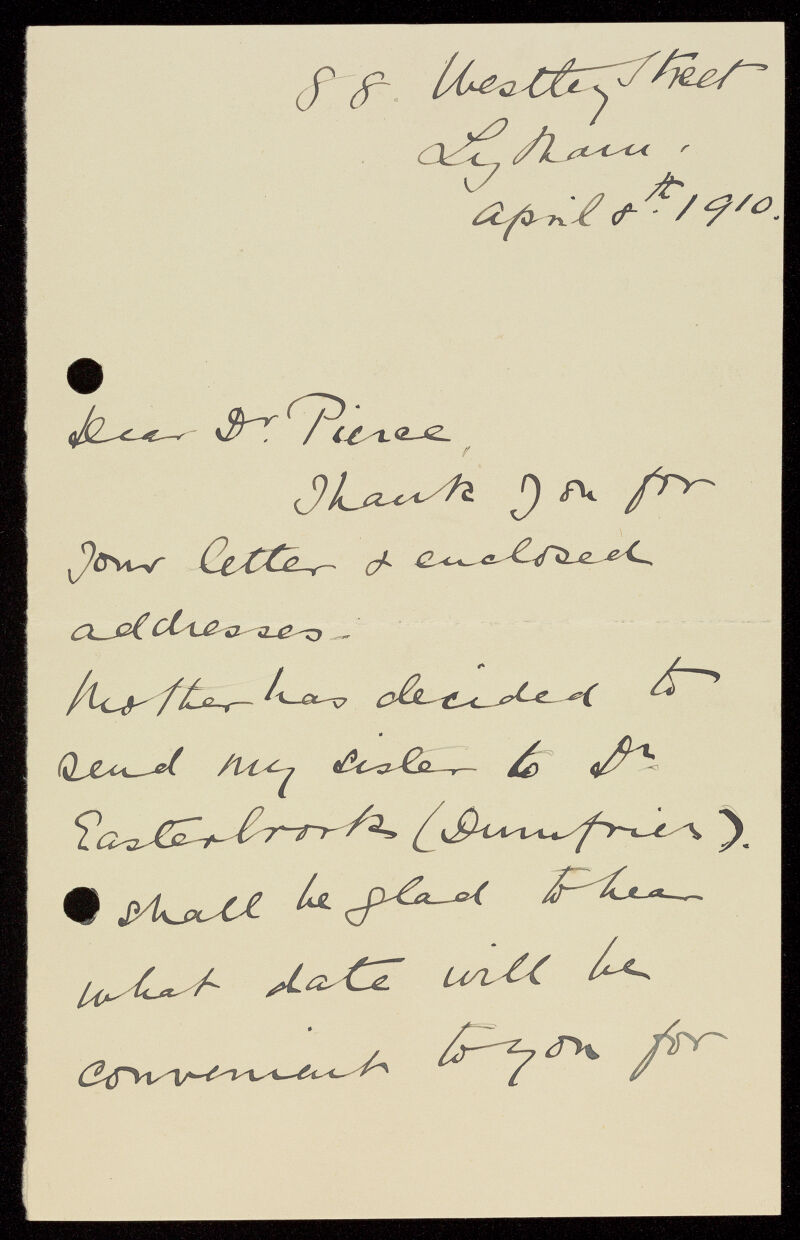 88. Westley Street
Lytham.
April 8th. 1910.
Dear Dr. Pierce,
Thank you for
your letter & enclosed
addresses.
Mother has decided to
send my sister to Dr
Easterbrook (Dumfries).
shall be glad to hear
what date will be
convenient to you for